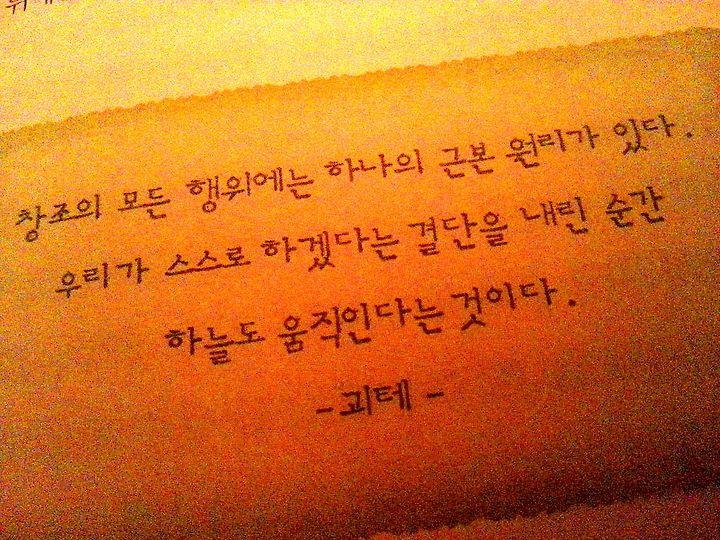 창조의 모든 행위에는 하나의 근본 원리가 있다.
우리가 스스로 하겠다는 결단을 내린 순간
하늘도 움직인다는 것이다.
-괴테-